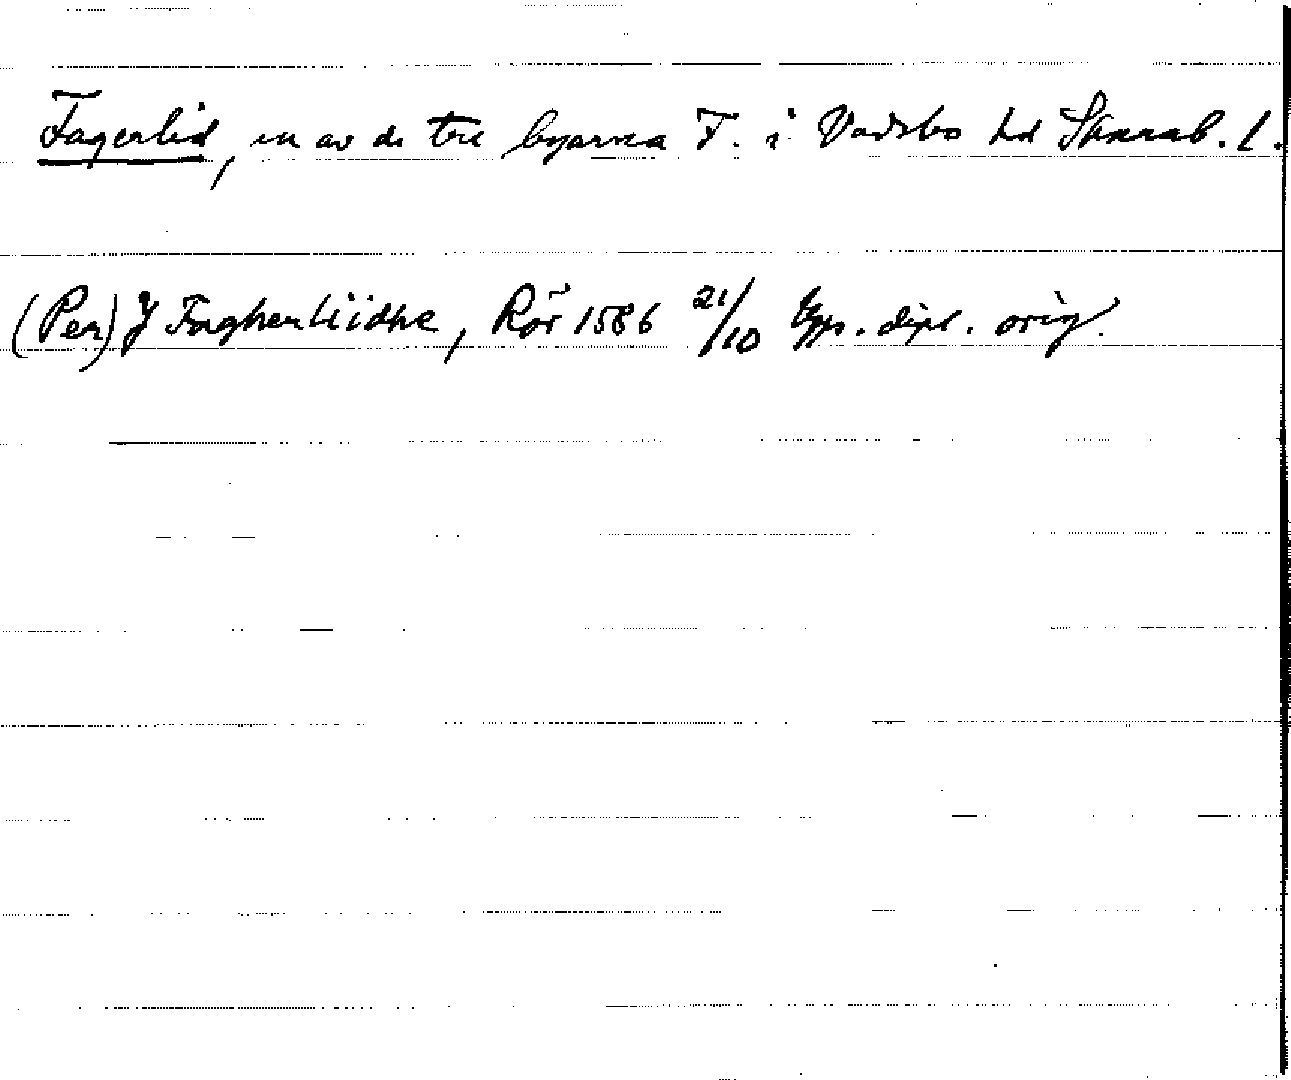 Fagerlid, en av de tre byarna F. i Vadsbo hd Skarab. l.
(Per) J Fagherliidhe, Rör 1586 21/10 Gyps. dipl. orig.